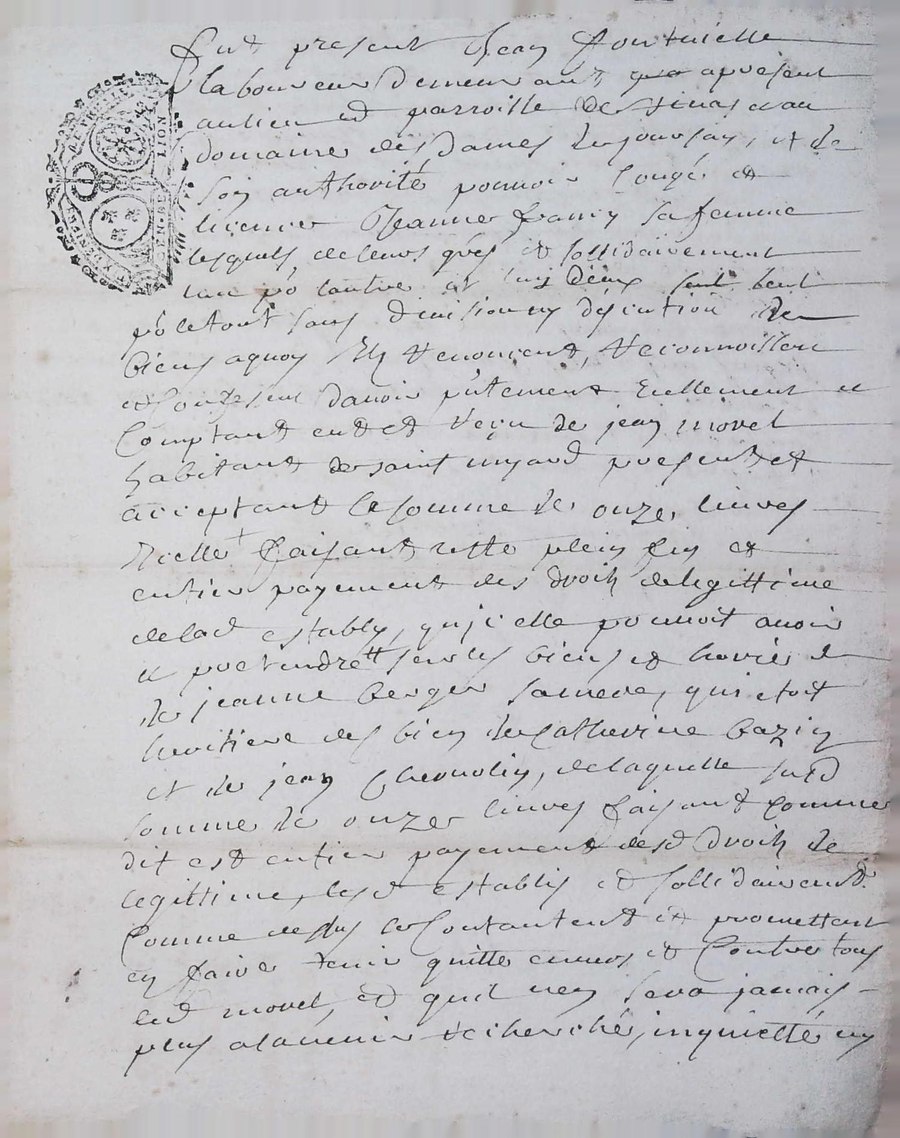 GENER. LION
Fut present Jean
laboureur demeurant apresent
au lieu et parroisse de au
domaine des Dames de et de
son authorité pouvoir congé et
licence Jeanne francy sa femme
lesquels de leurs grés et sollidairement
lun po lautre et lun deux seul
po le tout sans division ny discution de
biens aquoy ils renoncent, reconnoissen
et confessent davoir reellement et
comptant eu et reçu de jean morel
habitant de saint present et
acceptant la somme de onze livres
Icelle faisant reste plein fin et
entier payement des droits de legittime
de lad establis, qu'icelle pouvoit avoir
et pretendre sur les biens et
de jeanne berger sa mere, qui etoit
heritiere des biens de Catherine bazin
et de jean de laquelle susd
somme de onze livres faisant comme
dit est entier payement desd droits de
legittime, lesd establis et sollidairement
comme dessus se contentent et promettent
en faire tenir quitte envers et contre tous
led morel, et quil nen sera jamais
plus alavenir recherché, inquietté ny